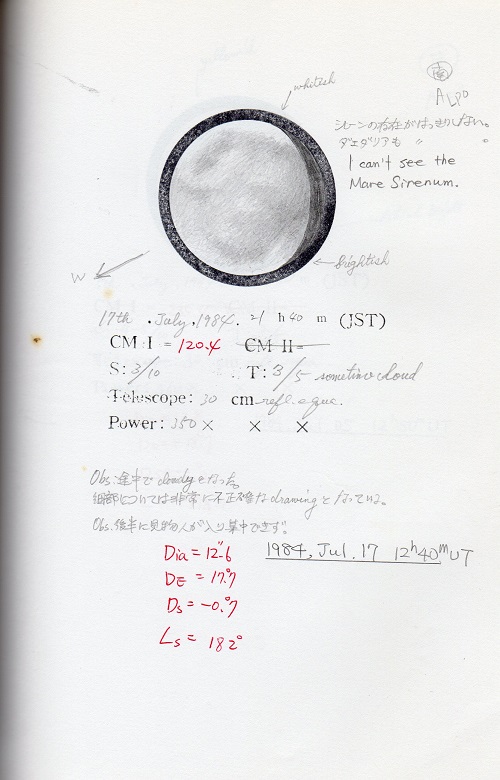 南
ALPO
whitish
シレーンの存在がはっきりしない。
ダエダリアも 〃 。
I can't see the
Mare Sirenum.
W
brightish
17th . July , 1984 . 21 h 40 m (JST)
CM I = 120.4 CM II =
S : 3/10 T : 3/5 sometime cloud
Telescope : 30 cm refl. equa.
Power : 350 × × ×
Obs. 途中で cloudy となった。
細部については非常に不正確な drawing となっている。
Obs. 後半に見物人が入り集中できず。
Dia = 12".6 1984, Jul. 17 12h40m UT
DE = 17°.7
Ds = -0°.7
Ls = 182°